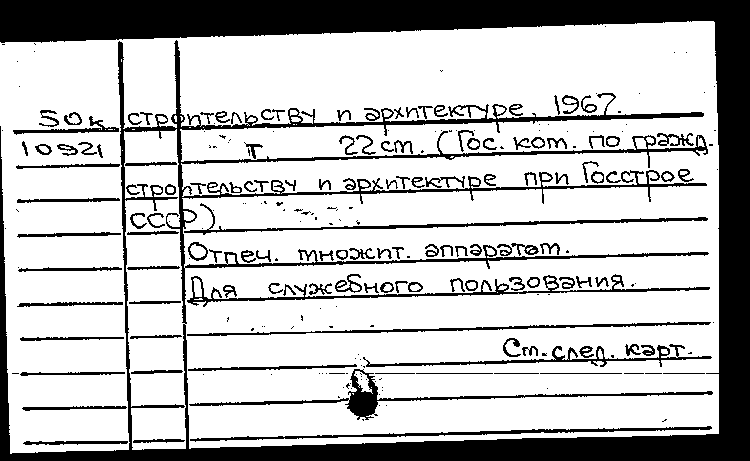 50к строительству и архитектуре, 1967.
10921 т. 22 см. (Гос. ком. по гражд.
строительству и архитектуре при Госстрое
СССР).
Отпеч. множит. аппаратом.
Для служебного пользования.
См. след. карт.